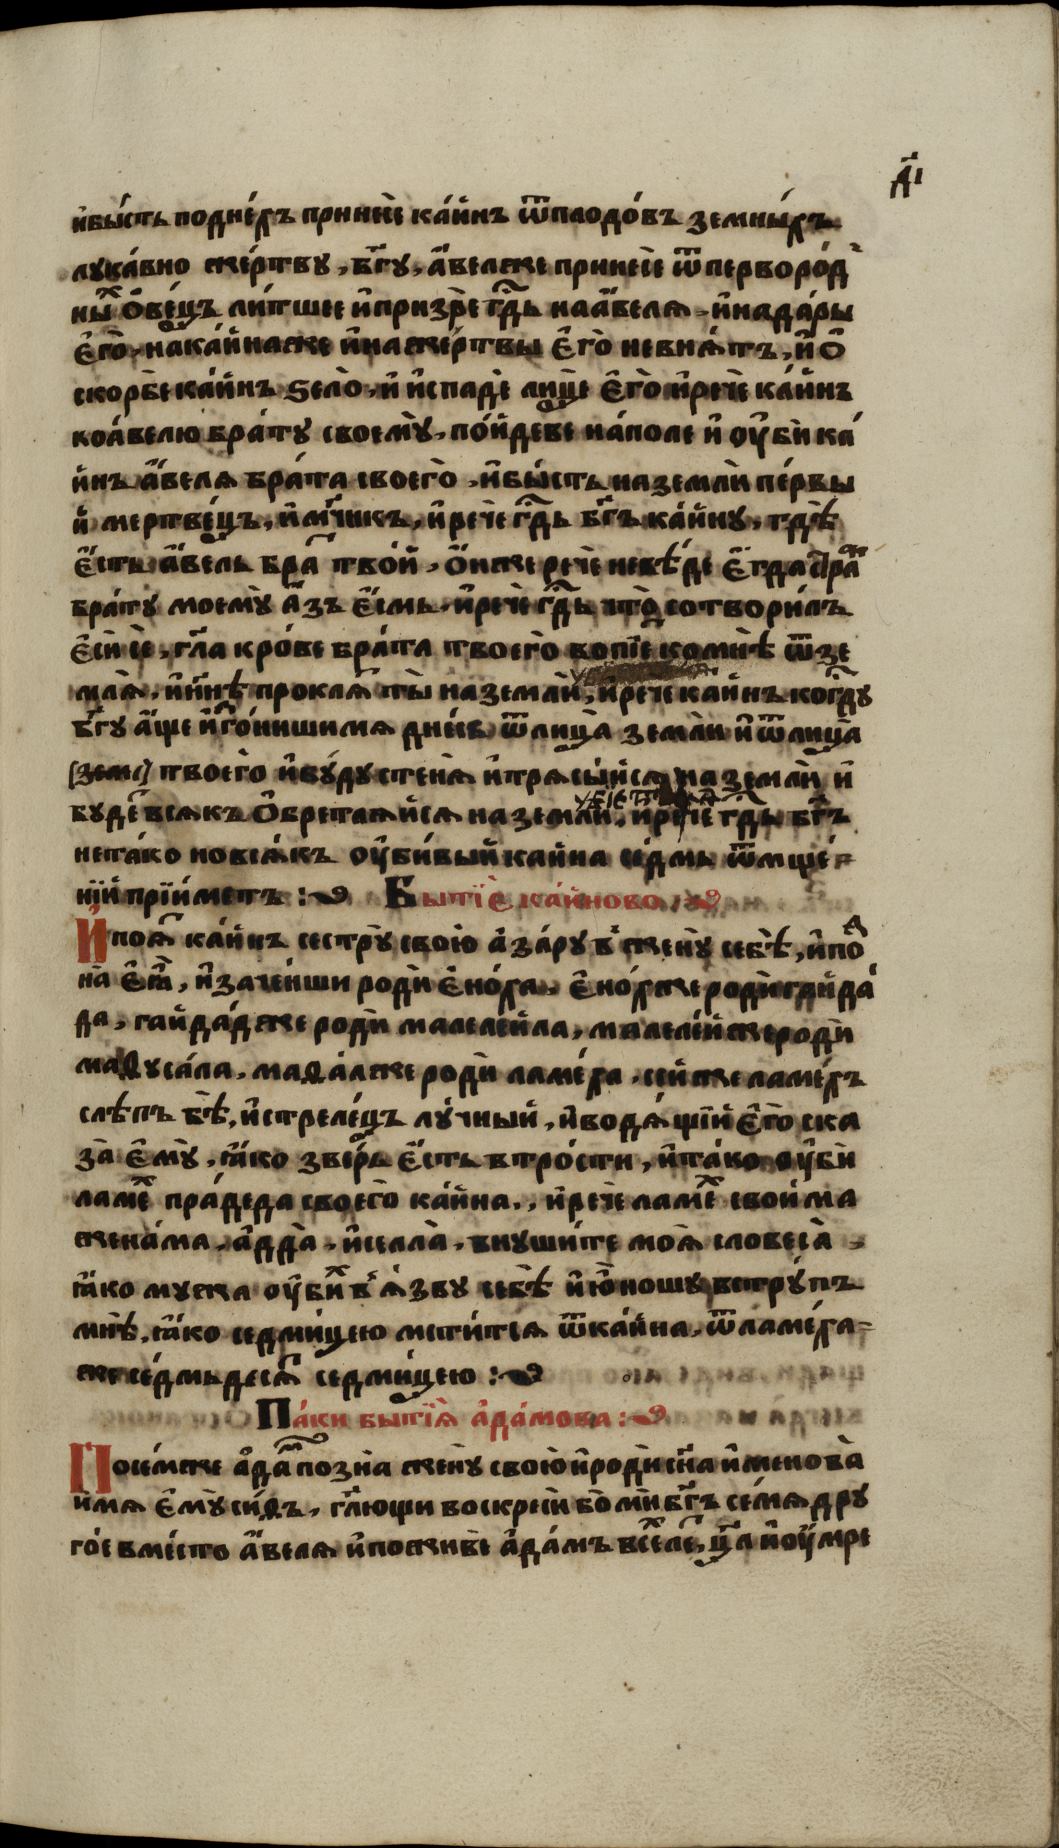 д҃і
и҆бы́сть подне́хъ принесе ка́инъ ѿплодо́въ земны́хъ
лука́вно же́ртву, бг҃у, а҆́вележе принесе ѿ перворо́д
ны́х о҆ве́цъ ли́тшее и҆призре гд҇ь наа҆́веля, и҆нада́ры
є҆го̀, нака́инаже и҆наже́ртвы є҆го̀ невня́тъ, и҆ѻ
скорбе ка́инъ ѕело̀, и҆ и҆спадѐ лицѐ є҆го̀ и҆рече ка́инъ
коа́велю бра́ту своемꙋ̀, по́йдеве на́поле и҆ ᲂу҆бѝ ка́
инъ а҆́веля бра́та своего̀, и҆бы́сть наземлѝ пе́рвы
й мертве́цъ, и҆мч҃нкъ, и҆рече гд҇ь бг҃ъ ка́ину, гдѣ̀
є҆́сть а҆́вель бра́т тво́й, о҆́нже рече невѣ́де є҆гда̀ стра́ж
бра́ту моемꙋ̀ а҆́зъ є҆́смь, и҆рече гд҇ь что̀ сотвори́лъ
є҆сѝ сѐ, гл҃а кро́ве бра́та твоего̀ вопїе комнѣ̀ ѿзе
мля̀, и҆нн҃ѣ прокля́т ты̀ наземлѝ, и҆рече ка́инъ когд҇у
бг҃у а҆́ще и҆зго́нишимя дне́сь ѿлица̀ землѝ и҆ѿлица̀
[земл] твоего̀ и҆бу́ду стеня̀ и҆трясы́йся наземлѝ и҆
убіетъ мя
буде́т всякъ о҆брета́яйся наземлѝ, и҆рече гд҇ь бг҃ъ
нета́ко новся́къ ᲂу҆би́вый ка́ина се́дмь ѿмще́
нїй прїи́метъ : Бытїѐ ка́иново :
И҆поя́т ка́инъ сестру̀ свою̀ а҆за́ру в҆ жену̀ себѣ̀, и҆по
зна̀ є҆ѧ̀, и҆заче́нши родѝ є҆но́ха, є҆но́хже родѝ гаида́
да, гаида́дже родѝ малелеи́ла, малеле́йжеродѝ
маѳуса́ла, маѳа́лже родѝ ламе́ха, се́йже ламе́хъ
слѣ́пъ бѣ̀, и҆стреле́цъ лу́чный, и҆водя́щїй є҆го̀ ска
за̀ є҆мꙋ̀, ꙗ҆́ко звѣ́рь є҆́сть втро́сти, и҆та́ко ᲂу҆бѝ
ламе́х пра́деда своего̀ ка́ина., и҆рече ламе́х свои́ма
жена́ма, а҆дда̀, и҆селла̀, внуши́те моя̀ словеса̀
ꙗ҆́ко мужа ᲂу҆би́х в҆я́зву себѣ̀ и҆ю҆́ношу встру́пъ
мнѣ̀, ꙗ҆́ко седми́цею мсти́тся ѿка́ина, ѿламе́ха
же се́дмьдеся́т седми́цею :
Па́ки бытїя̀ а҆да́мова :
Посе́мже а҆да́м позна̀ жену̀ свою̀ и҆родѝ сн҃а и҆менова̀
и҆́мя є҆мꙋ̀ си́ѳъ, гл҃ющи воскресѝ бо мѝ бг҃ъ се́мя дру
го́е вмѣ́сто а҆́веля и҆поживѐ а҆да́мъ все́х ле́т, ц҃л и҆ᲂу҆мре